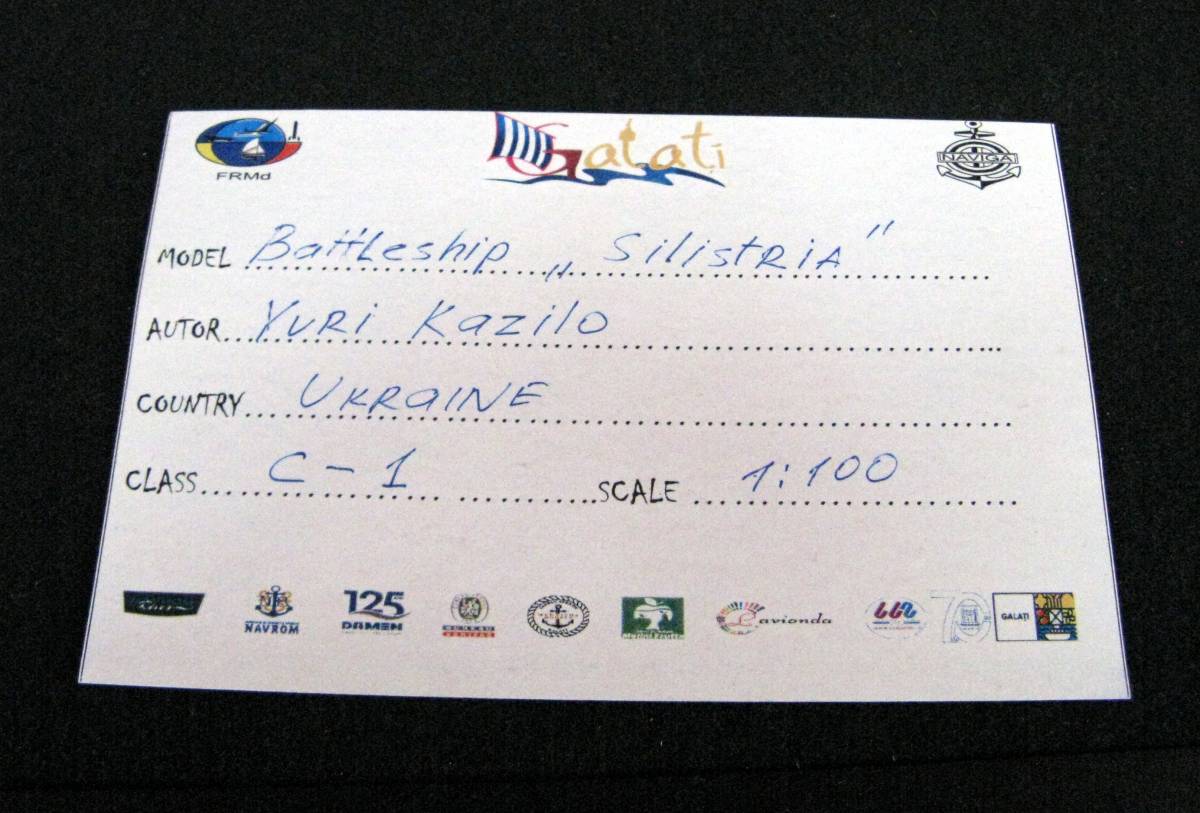 FRMd Galati NAVIGA
MODEL Battleship „Silistria"
AUTOR Yuri Kazilo
COUNTRY Ukraine
CLASS C-1 SCALE 1:100
NAVROM 125 DAMEN BUREAU VERITAS Lavionda 70 GALAȚI